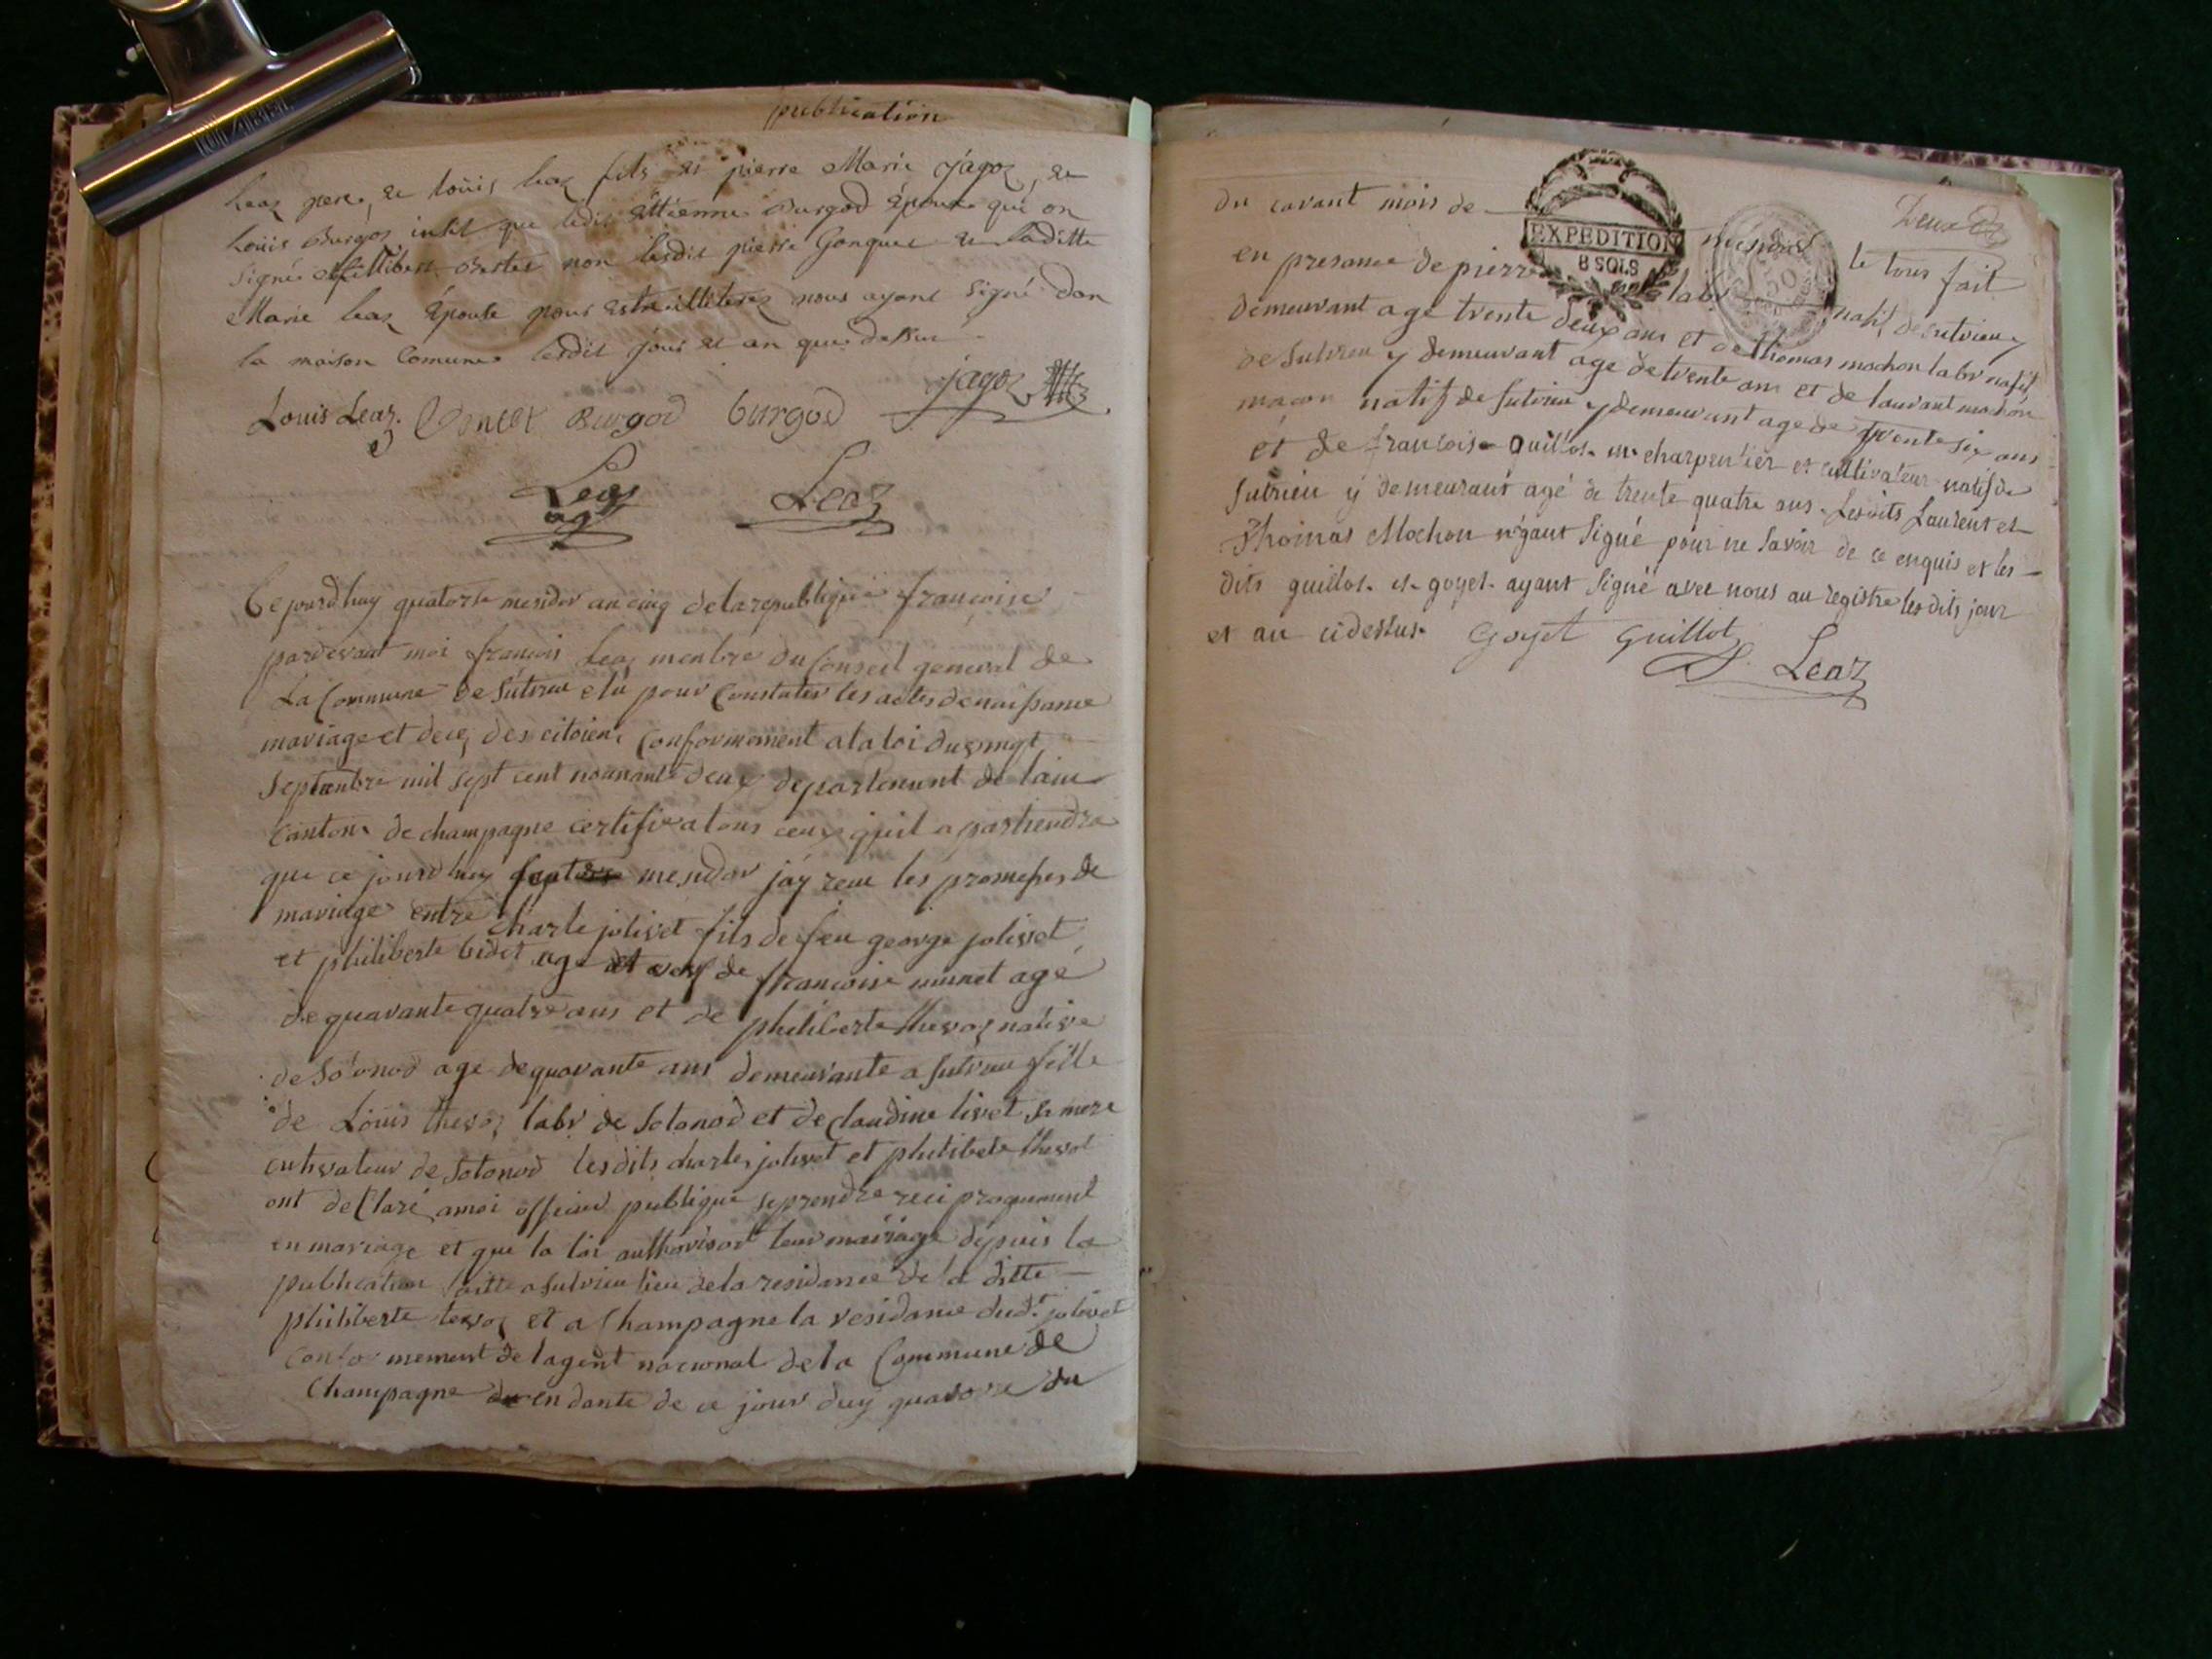 publication
Leaz pere, et loüis leaz fils et pierre Marie jagoz, et
Loüis Burgoz que ledit Ettienne Burgod Époux qui on
Signé non lesdit pierre Gonguet et laditte
Marie leaz Épouse pour estre illiterez nous ayant signé dan
la maison Comune lesdit jour et an que dessus
Louis Leaz. Burgod burgod jagoz
Leaz
ag Leaz
Cejourdhuy quatorse mesidor an cinq delarepublique françoise
pardevant moi francois Leaz menbre du Conseil general de
La Commune de Sutrieu elu pour Constater les actes denaissance
mariage et dece, des citoiens Conformement ala loi du vingt
Septembre mil sept cent nonante deux departement de lain
Canton de champagne certifie atous ceux quil apartiendra
que ce jourdhuy mesidor jáy recu les promesses de
mariage entre charle jolivet fils de feu george jolivet
et philiberte bidet age et veuf de francoise minnet agé
de quarante quatre ans et de philiberte thevoz native
de Sotonod age de quarante ans demeurante a Sutrieu fille
de Louis thevoz labr de Sotonod et de Claudine livet sa mere
cultivateur de Sotonod lesdits charles jolivet et philiberte thevot
ont declaré amoi officier publique seprendre reciproquement
en mariage et que la loi authorisoit leur mariage depuis la
publication faitte a Sutrieu lieu dela residance de la ditte
philiberte tevoz et a Champagne la residance dudt jolivet
Conformement de lagent nacional dela Commune de
Champagne en dante de ce jour duy quatorze du
du courant mois de mesidor le tous fait
Deux
EXPEDITION
8 SOLS
en presance de pierre labr natif de sutrieu y
demeurant age trente deux ans et de thomas mochon labr natif
de Sutrieu y demeurant age de trente ans et de laurant mochon
macon natif de Sutrieu y demeurant age de trente six ans
et de francoise guillot me charpentier et cultivateur natif de
Sutrieu y demeurant agé de trente quatre ans. Lesdits Laurent et
Thomas Mochon n'ayant signé pour ne savoir de ce enquis et les
dits guillot et goyet ayant signé avec nous au registre lesdits jour
et an cidessus. Goyet Guillot
Leaz